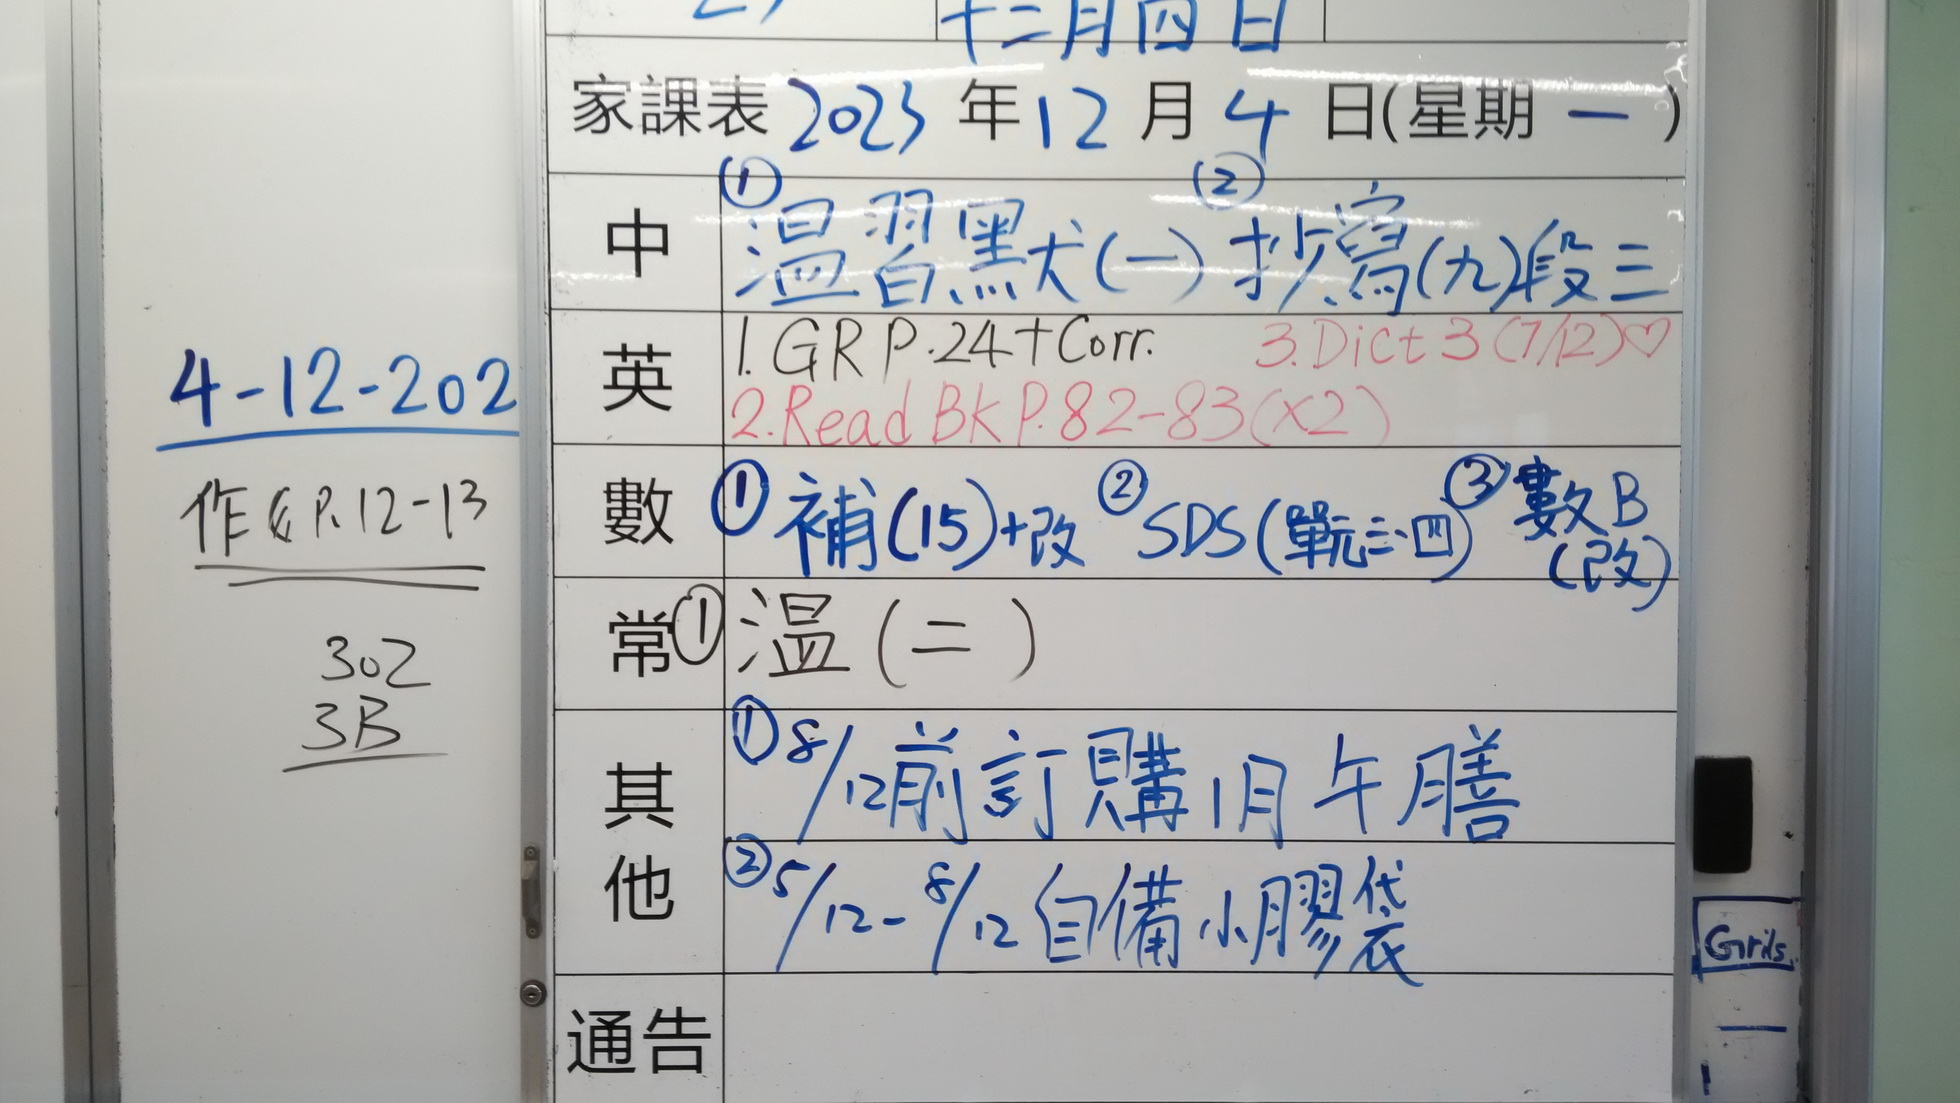 十二月四日
家課表 2023 年 12 月 4 日(星期 一 )
中 ① 温習默(一) ② 抄寫(九)段三
英 1. GR P.24+Corr. 3. Dict 3 (7/12)♡
2. Read BK P.82-83(x2)
數 ① 補(15)+改 ② SDS(單元三、四) ③ 數B
(改)
常 ① 温(二)
其他 ① 8/12前訂購1月午膳
② 5/12-8/12自備小膠袋
通告
4-12-202
P.12-13
302
3B
Grils